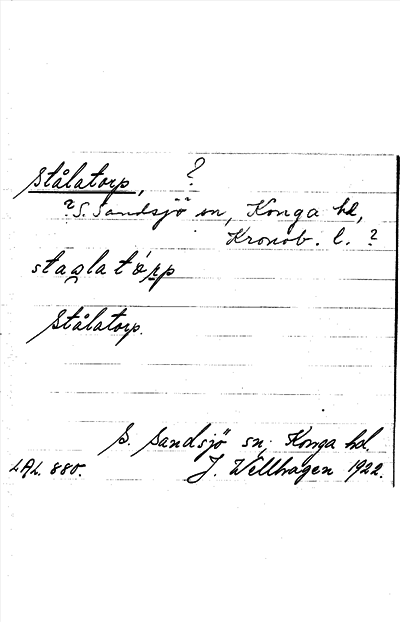 Stålatorp, ?
?S. Sandsjö sn, Konga hd,
Kronob. l. ?
staglatórp
Stålatorp.
S. Sandsjö sn, Konga hd.
LAL. 880. J. Wellhagen 1922.